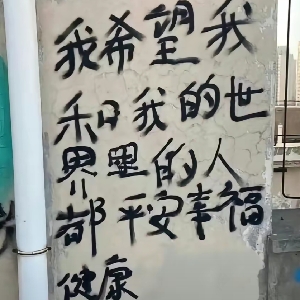 我希望我
和我的世
界里的人
都平安幸福
健康